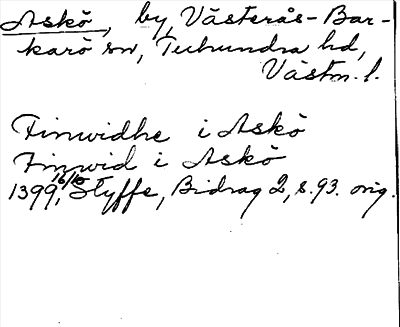 Askö, by, Västerås-Bar-
karö sn, Tuhundra hd,
Västm. l.
Finwidhe i Askö
Finwid i Askö
1399 16/10, Styffe, Bidrag 2, s. 93. orig.